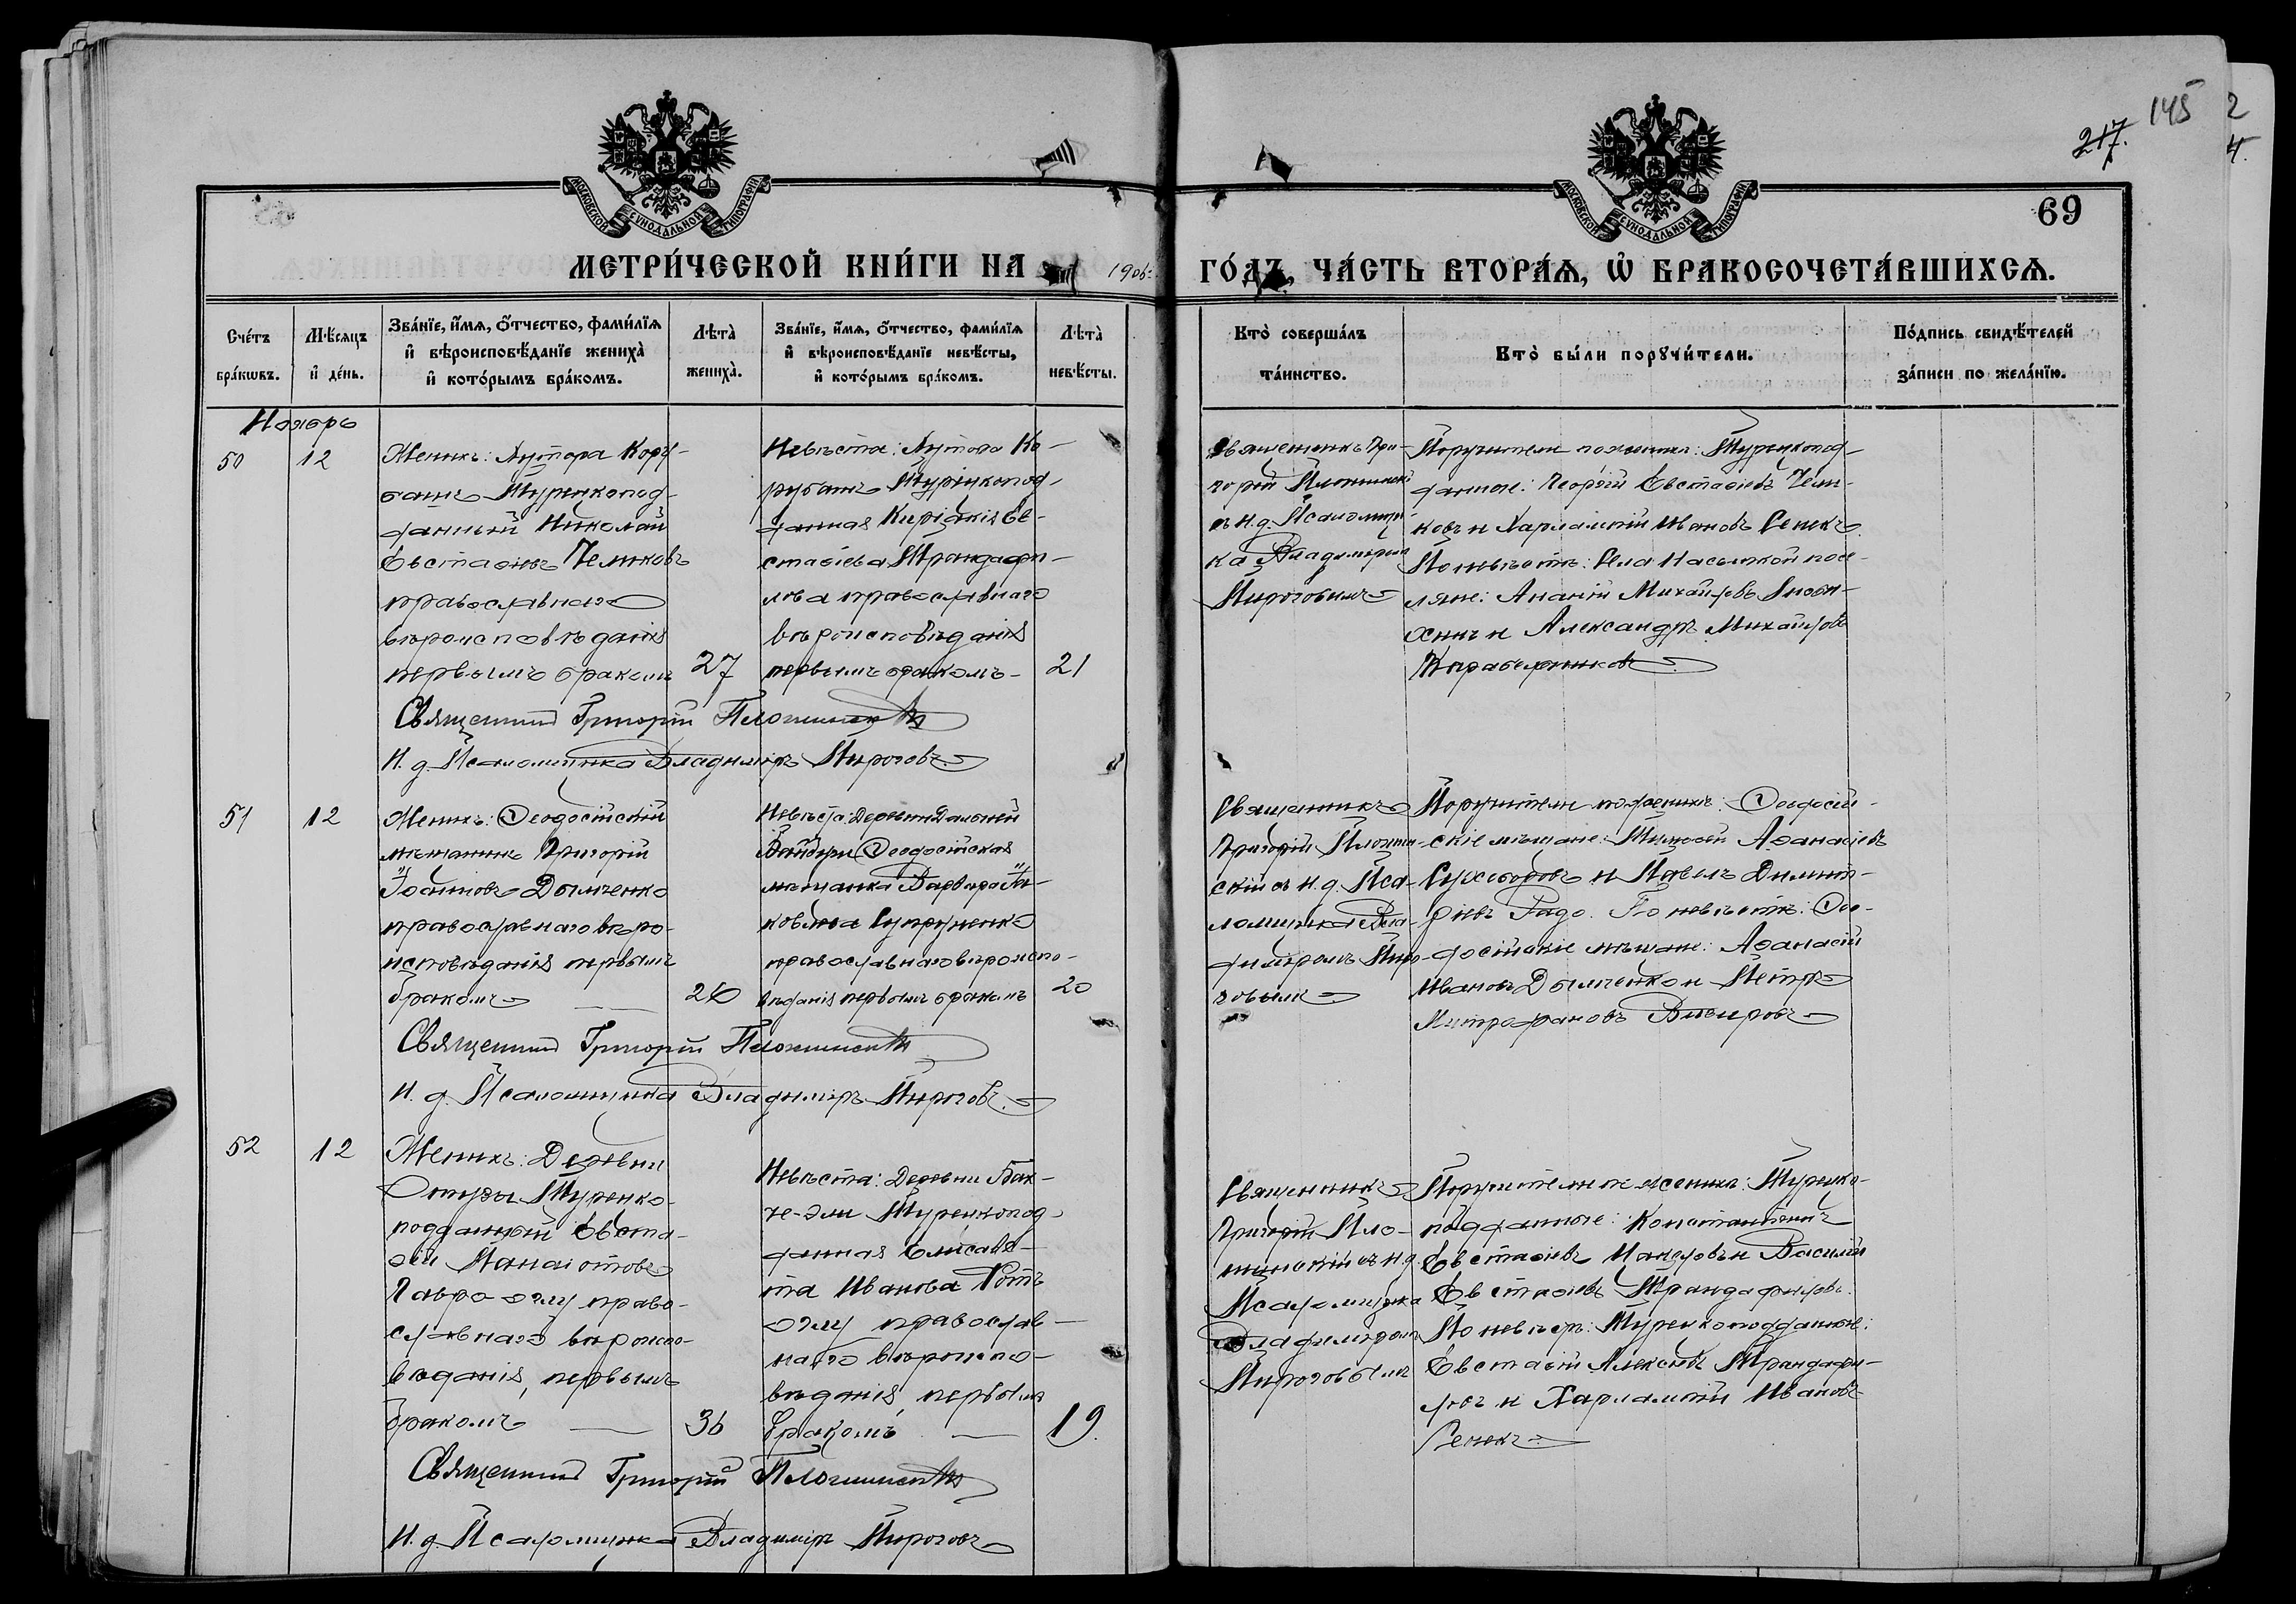 145
217.
2
4.
69
МОСКОВСКОЙ СѴНОДАЛЬНОЙ ТИПОГРАФІИ
МОСКОВСКОЙ СѴНОДАЛЬНОЙ ТИПОГРАФІИ
МЕТРИ́ЧЕСКОЙ КНИ́ГИ НА 1906 ГО́ДЪ, ЧА́СТЬ ВТОРА́Ѧ, Ѽ БРАКОСОЧЕТА́ВШИХСѦ.
Сче́тъ бра́кѡвъ.
Мѣ́сѧцъ и҆ де́нь.
Зва́нїе, и҆́мѧ, ѻ҆́тчество, фами́лїѧ
и҆ вѣроисповѣ́данїе жениха̀
и҆ кото́рымъ бра́комъ.
Лѣта̀ жениха̀.
Зва́нїе, и҆́мѧ, ѻ҆́тчество, фами́лїѧ
и҆ вѣроисповѣ́данїе невѣ́сты,
и҆ кото́рымъ бра́комъ.
Лѣта̀ невѣ́сты.
Кто̀ соверша́лъ та́инство.
Кто̀ бы́ли порꙋчи́тели.
По́дпись свидѣ́телей
за́писи по жела́нїю.
Ноябрь
50
12
Женихъ: Хутора Кору-
башъ Турецкопод-
данный Николай
Евстаѳіевъ Челиковъ
православнаго
вѣроисповѣданія
первымъ бракомъ
27
Невѣста: Хутора Ко-
рубашъ Турецкопод-
данная Киріакія Ев-
стаѳіева Трандафи-
лова православнаго
вѣроисповѣданія
первымъ бракомъ
21
Священникъ Гри-
горій
съ и.д. Псаломщи-
ка Владиміромъ
Пироговымъ
Поручители по женихѣ: Турецкопод-
данные: Георгій Евстаѳіевъ Чели-
ковъ и Харлампій Ивановъ Сенекъ
По невѣстѣ: Села Насыпкой посе-
ляне: Ананій Михайловъ
и Александръ Михайловъ
Корабельниковъ
Священникъ Григорій
И. д. Псаломщика Владиміръ Пироговъ
51
12
Женихъ: Ѳеодосійскій
мѣщанинъ Григорій
Іоанновъ Дымченко
православнаго вѣро-
исповѣданія первымъ
бракомъ
26
Невѣста: Деревни Дальней
Байбуги Ѳеодосійская
мѣщанка Варвара Іа-
ковлева Супруненко
православнаго вѣроиспо-
вѣданія первымъ бракомъ
20
Священникъ
Григорій
съ и. д. Пса-
ломщика Вла-
диміромъ Пиро-
говымъ
Поручители по женихѣ: Ѳеодосій-
скіе мѣщане: Тимоѳей Аѳанасіевъ
и Павелъ Димит-
ріевъ Гадо. По невѣстѣ: Ѳео-
досійскіе мѣщане: Аѳанасій
Ивановъ Дымченко и Петръ
Митрофановъ
Священникъ Григорій
И. д. Псаломщика Владиміръ Пироговъ
52
12
Женихъ: Деревни
Отузы Турецко-
подданный Евста-
ѳій Панаіотовъ
Лавра-оглу право-
славнаго вѣроиспо-
вѣданія, первымъ
бракомъ
36
Невѣста: Деревни Бак-
че-Эли Турецкопод-
данная Елисаве-
та Иванова
оглу православ-
наго вѣроиспо-
вѣданія, первымъ
бракомъ
19.
Священникъ
Григорій
съ и. д.
Псаломщика
Владиміромъ
Пироговымъ
Поручители по женихѣ: Турецко-
подданные: Константинъ
Евстаѳіевъ и Василій
Евстаѳіевъ Трандафиловъ.
По невѣстѣ: Турецкоподданные:
Евстаѳій Алексѣевъ Трандафи-
ловъ и Харлампій Ивановъ
Сенекъ
Священникъ Григорій
И. д. Псаломщика Владиміръ Пироговъ